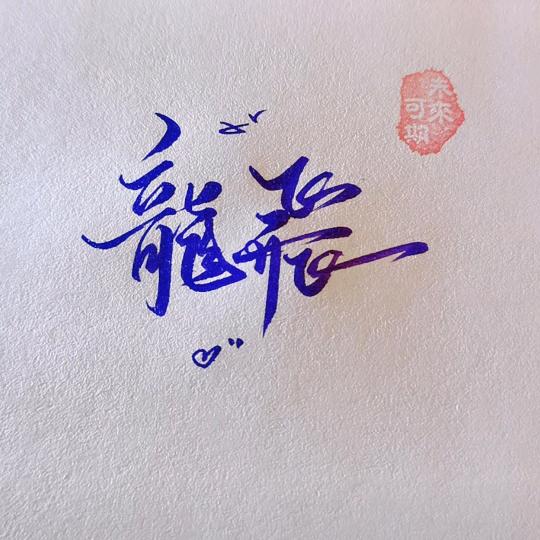 龍飛
未來
可期